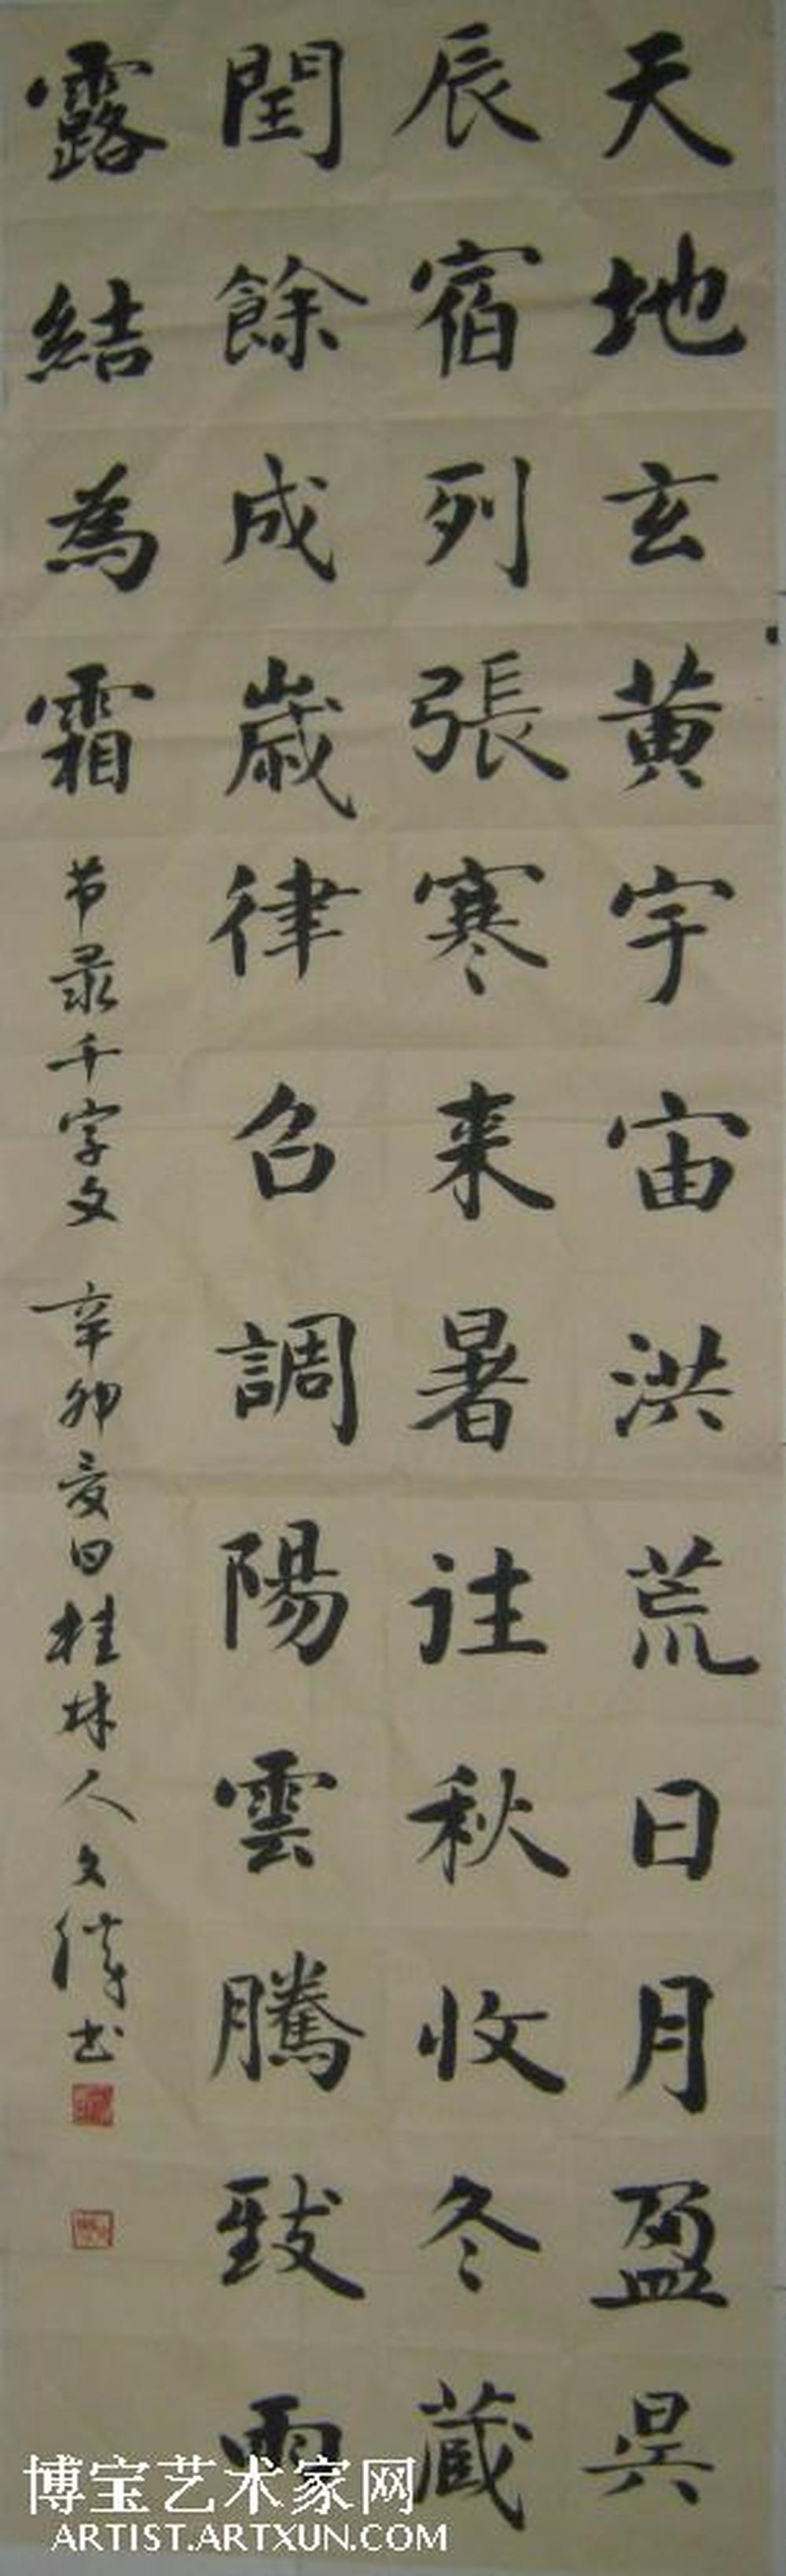 天地玄黄宇宙洪荒日月盈昃
辰宿列張寒来暑往秋收冬藏
閏餘成歲律召調陽雲騰致雨
露結為霜
节录千字文 辛卯夏日桂林人文书
博宝艺术家网
ARTIST.ARTXUN.COM